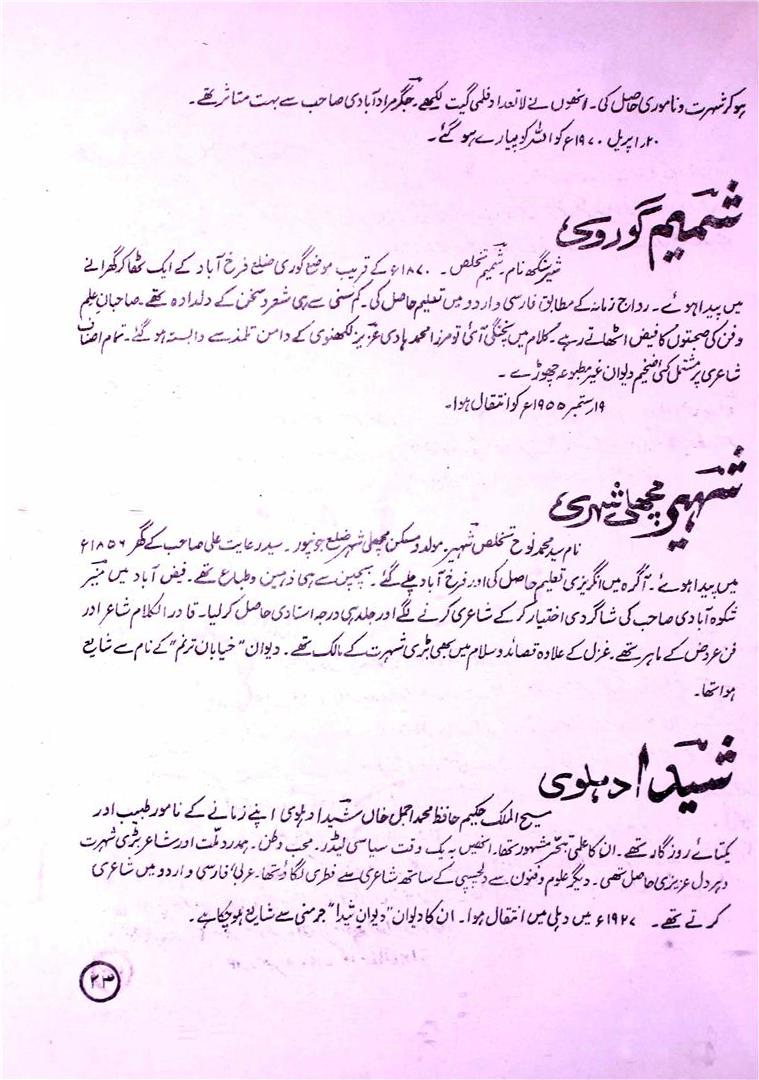 ہوکر شہرت و ناموری حاصل کی۔ انھوں نے لاتعداد فلمی گیت لکھے۔ جگر مرادآبادی صاحب سے بہت متاثر تھے۔
۲۰؍ اپریل ۱۹۷۰ء کو اللہ کو پیارے ہوگئے۔
شمیم گوروی
شیر سنگھ نام، شمیم تخلص۔ ۱۸۷۰ء کے قریب موضع گوری ضلع فرخ آباد کے ایک ٹھاکر گھرانے
میں پیدا ہوئے۔ رواج زمانہ کے مطابق فارسی و اردو میں تعلیم حاصل کی۔ کم سنی سے ہی شعر و سخن کے دلدادہ تھے۔ صاحبان علم
و فن کی صحبتوں کا فیض اٹھاتے رہے۔ کلام میں پختگی آئی تو مرزا محمد ہادی عزیز لکھنوی کے دامن تلمذ سے وابستہ ہوگئے۔ تمام اصناف
شاعری پر مشتمل کئی ضخیم دیوان غیر مطبوعہ چھوڑے۔
۱۹؍ ستمبر ۱۹۵۵ء کو انتقال ہوا۔
شہیر مچھلی شہری
نام سید محمد نوح تخلص شہیر۔ مولد و مسکن مچھلی شہر ضلع جونپور۔ سید رعایت علی صاحب کے گھر ۱۸۵۶ء
میں پیدا ہوئے۔ آگرہ میں انگریزی تعلیم حاصل کی اور فرخ آباد چلے گئے۔ بچپن سے ہی ذہین و طباع تھے۔ فیض آباد میں منیر
شکوہ آبادی صاحب کی شاگردی اختیار کرکے شاعری کرنے لگے اور جلد ہی درجہ استادی حاصل کرلیا۔ قادرالکلام شاعر اور
فن عروض کے ماہر تھے۔ غزل کے علاوہ قصائد و سلام میں بھی بڑی شہرت کے مالک تھے۔ دیوان "خیابان ترنم" کے نام سے شایع
ہوا تھا۔
شیدا دہلوی
مسیح الملک حکیم حافظ محمد اجمل خاں شیدا دہلوی اپنے زمانے کے نامور طبیب اور
یکتائے روزگار تھے۔ ان کا علمی تبحر مشہور تھا۔ انھیں بیک وقت سیاسی لیڈر۔ محب وطن۔ ہمدرد ملت اور شاعر بڑی شہرت
و ہردل عزیزی حاصل تھی۔ دیگر علوم و فنون سے دلچسپی کے ساتھ شاعری سے فطری لگاؤ تھا۔ عربی فارسی و اردو میں شاعری
کرتے تھے۔ ۱۹۲۷ء میں دہلی میں انتقال ہوا۔ ان کا دیوان "دیوان شیدا" جرمنی سے شایع ہوچکا ہے۔
۲۳